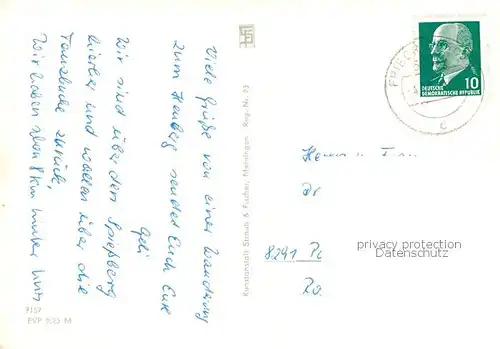 Viele Grüße von einer Wanderung
zum Heuberg sendet Euch Eure
Geli
Wir sind über den Spießberg
hierher und wollen über die
Tanzbuche zurück.
Wir haben schon 8 km hinter uns
7157
EVP 0,25 M
Kunstanstalt Straub & Fischer, Meiningen Reg.-Nr. 93
FRIED
DEUTSCHE
DEMOKRATISCHE REPUBLIK
10
c
Herrn u. Frau
Dr
8291
privacy protection
Datenschutz